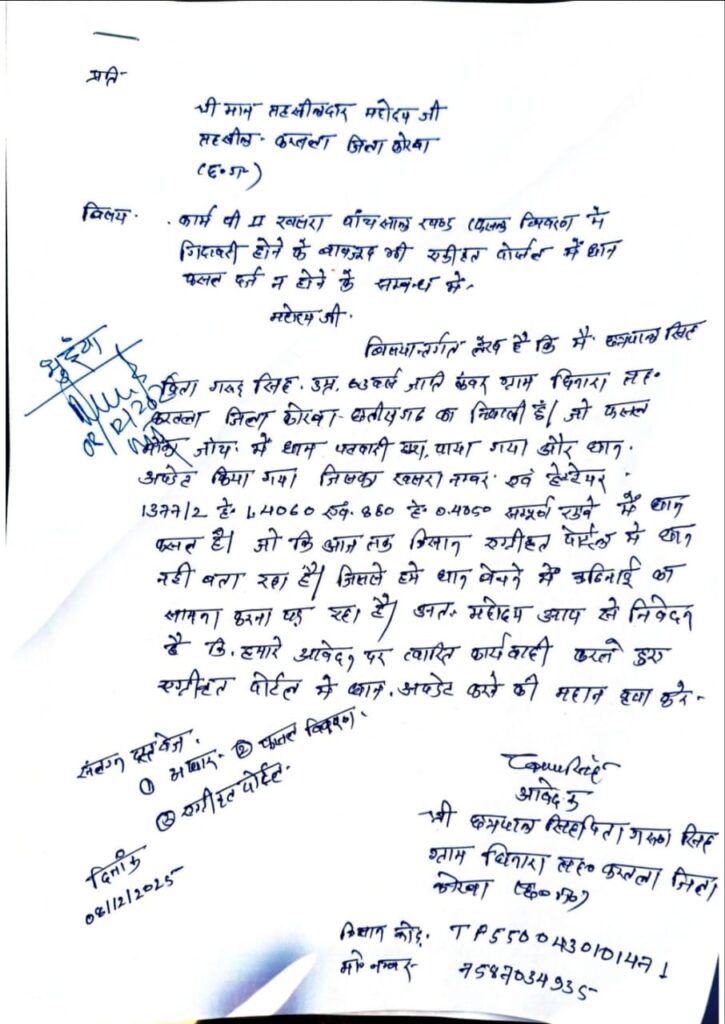 प्रति-
श्री मान तहसीलदार महोदय जी
तहसील- करतला जिला कोरबा
(छ.ग.)
विषय- फार्म बी II खसरा पांचसाला खण्ड (फसल विवरण में
गिदावरी होने के बावजूद भी एग्रीहत पोर्टल में धान
फसल दर्ज न होने के सम्बन्ध में-
महोदय जी.
विषयान्तर्गत लेख है कि मैं छत्रपाल सिंह
पिता गरुड़ सिंह. उम्र. जाति कंवर ग्राम चिनारा तह०
करतला जिला कोरबा- छत्तीसगढ़ का निवासी हूँ। जो फसल
मौका जांच में धान पटवारी द्वारा पाया गया और धान.
अपडेट किया गया जिसका खसरा नम्बर एवं हेक्टेयर
1377/2 हे. 1.4060 एवं. 860 हे. 0.4050 सम्पूर्ण रकबे में धान
फसल है। जो कि आज तक किसान एग्रीहत पोर्टल में धान
नही बता रहा है। जिससे हमे धान बेचने में कठिनाई का
सामना करना पड़ रहा है। अतः महोदय आप से निवेदन
है कि. हमारे आवेदन पर त्वारित कार्यवाही करते हुए
एग्रीहत पोर्टल में धान. अपडेट करने की महान कृपा करे-
भुइंया
संलग्न दस्तावेज.
① आधार- ② फसल विवरण.
③ एग्रीहत पोर्टल.
दिनांक
08/12/2025
आवेदक
श्री छत्रपाल सिंह पिता गरुड़ सिंह
ग्राम चिनारा तह० करतला जिला
कोरबा (छ०ग०)
किसान कोड. TP5500430101471
मो० नम्बर- 7587034935